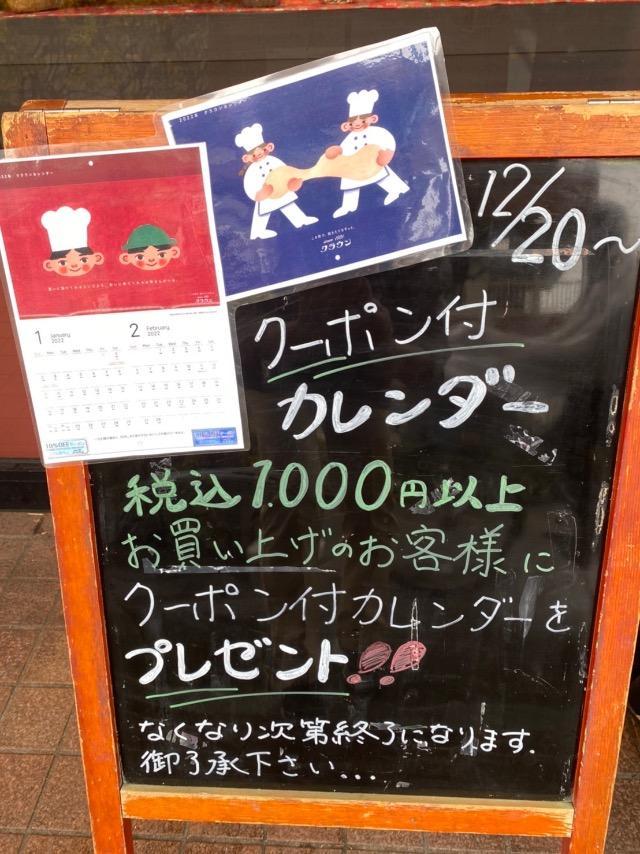 2022年 クラウンカレンダー
since 1920
クラウン
クラウン
1 January 2022
2 February 2022
10%OFFクーポン
12/20〜
クーポン付
カレンダー
税込1,000円以上
お買い上げのお客様に
クーポン付カレンダーを
プレゼント!!
なくなり次第終了になります.
御了承下さい...